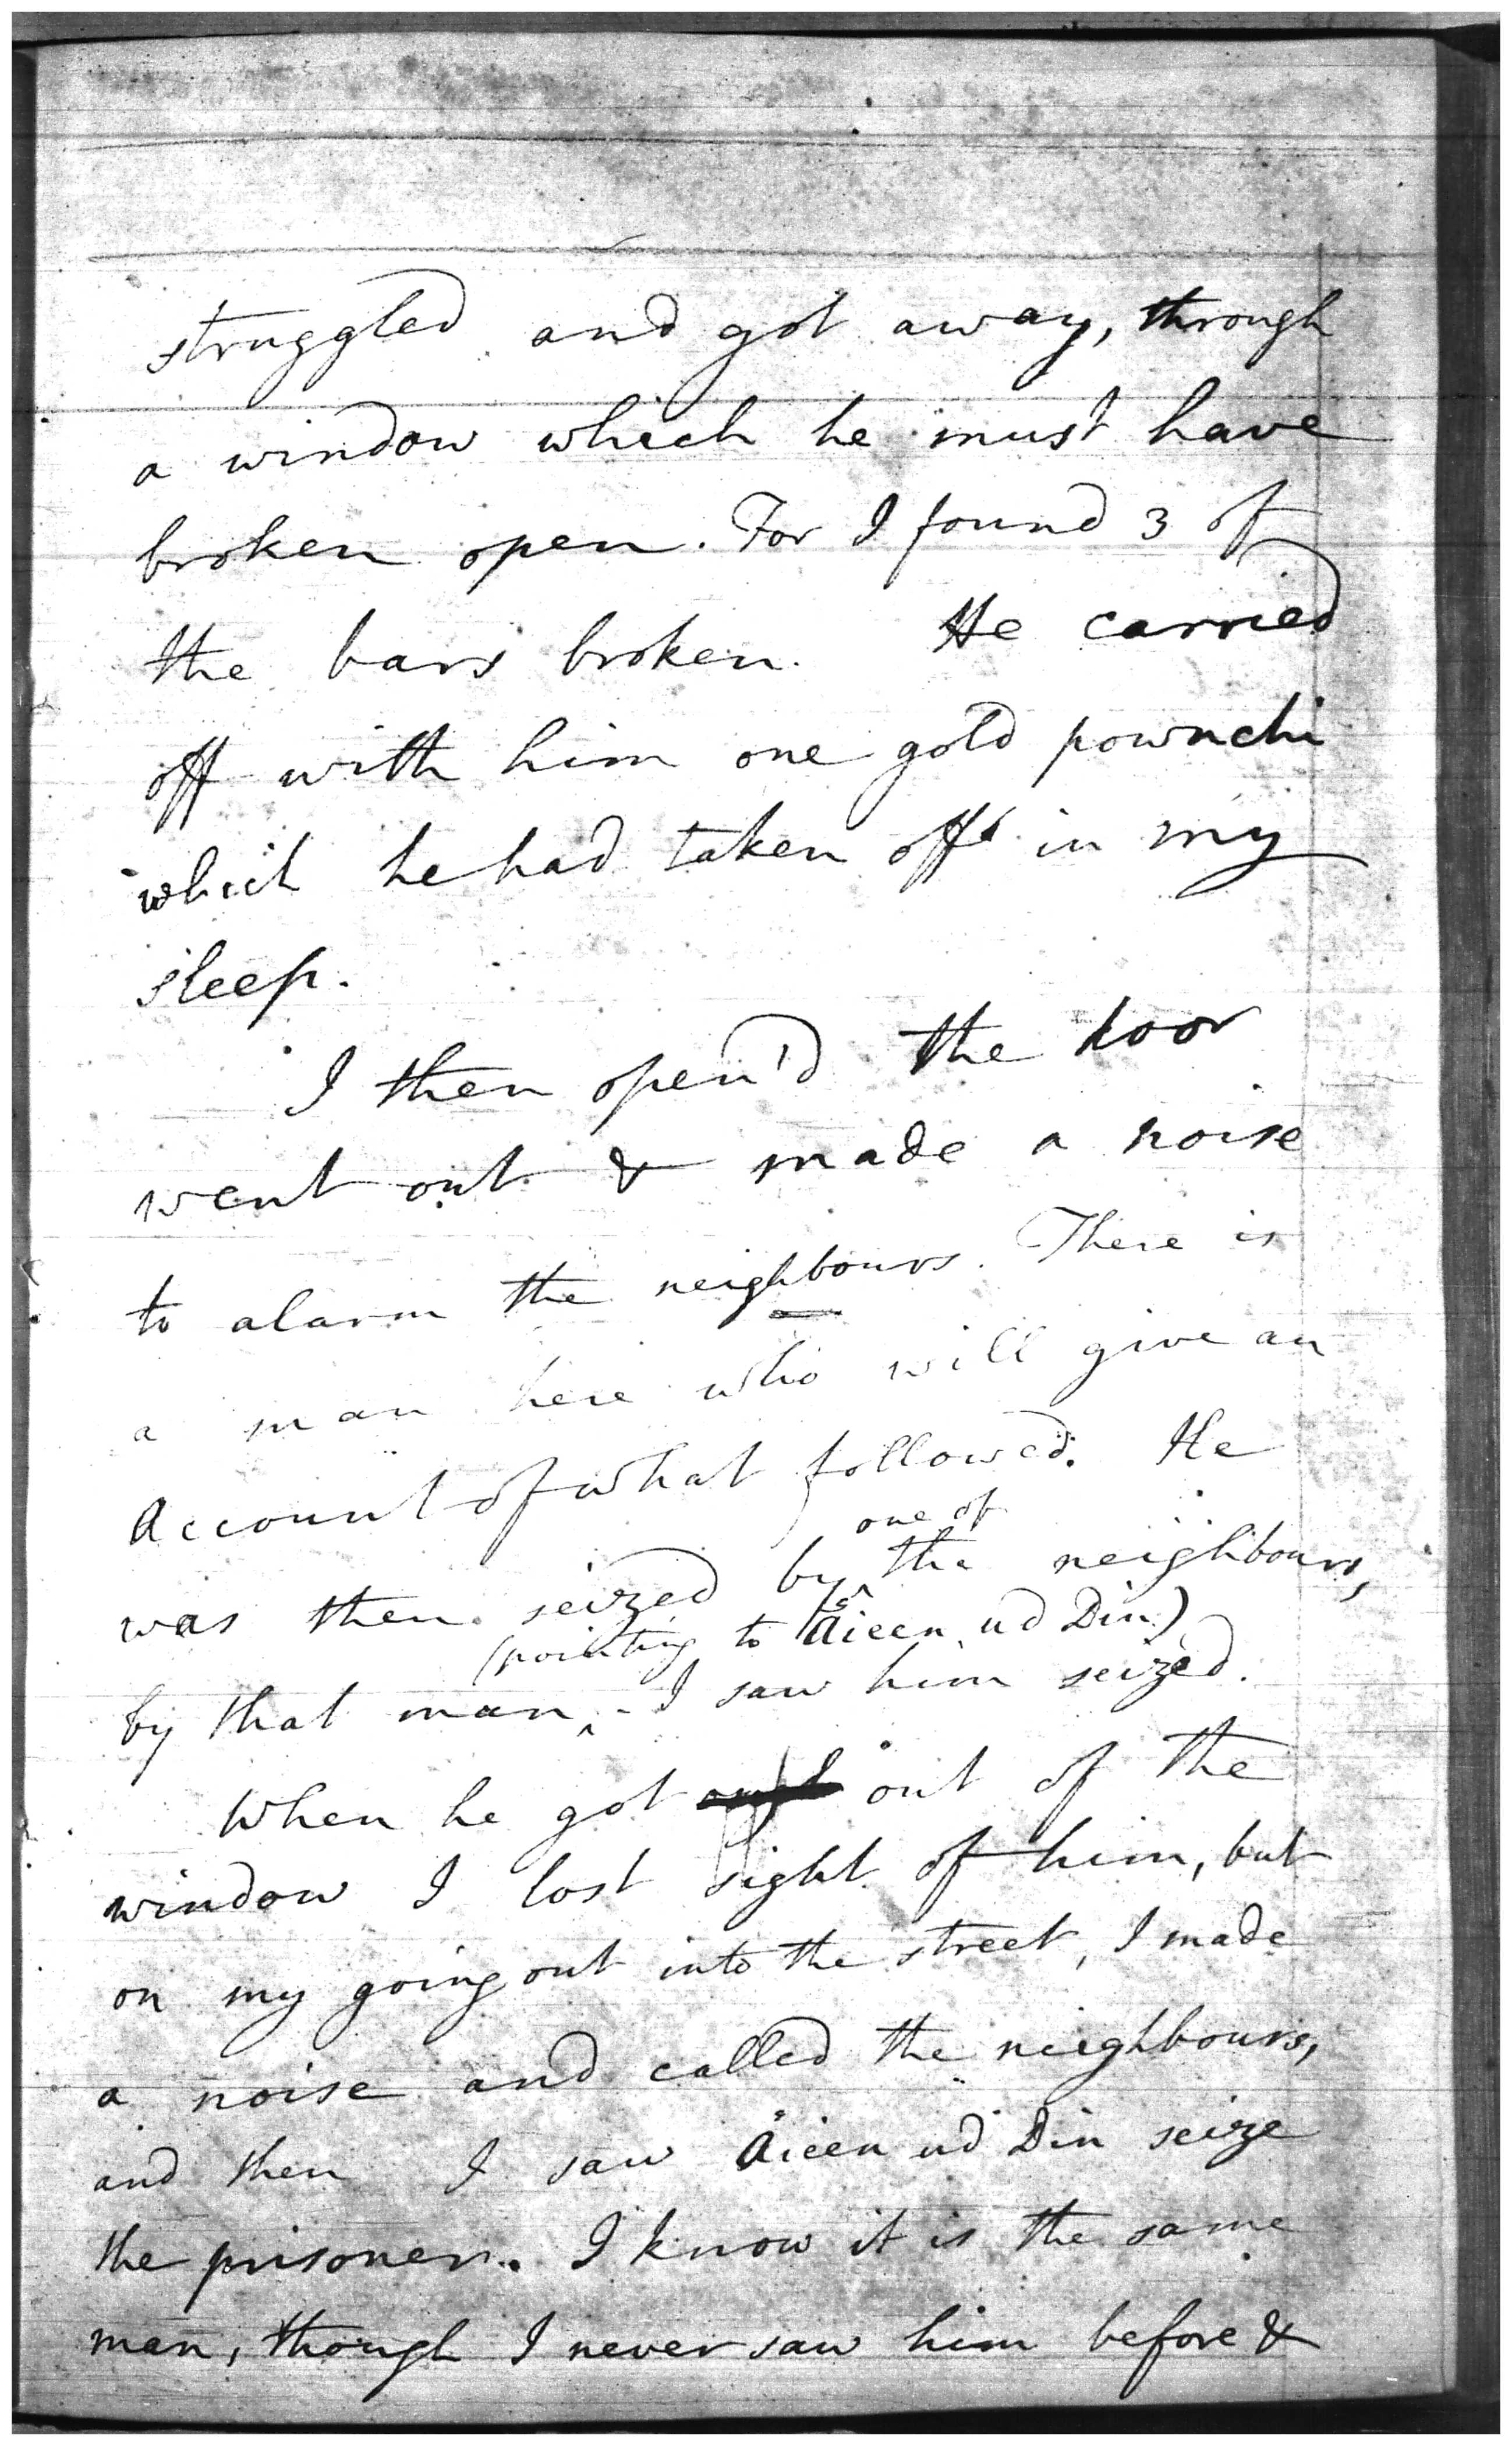 struggled and got away, through
a window which he must have
broken open. For I found 3 of
the bars broken. He carried
off with him one gold pownchi
which he had taken off in my
sleep.
I then open'd the door
went out & made a noise
to alarm the neighbours. There is
a man here who will give an
account of what followed. He
one of
was then seized by the neighbours,
(pointing to Aieen ud Din)
by that man, - I saw him seized.
When he got out of the
window I lost sight of him, but
on my going out into the street, I made
a noise and called the neighbours,
and then I saw Aieen ud Din seize
the prisoner. I know it is the same
man, though I never saw him before &